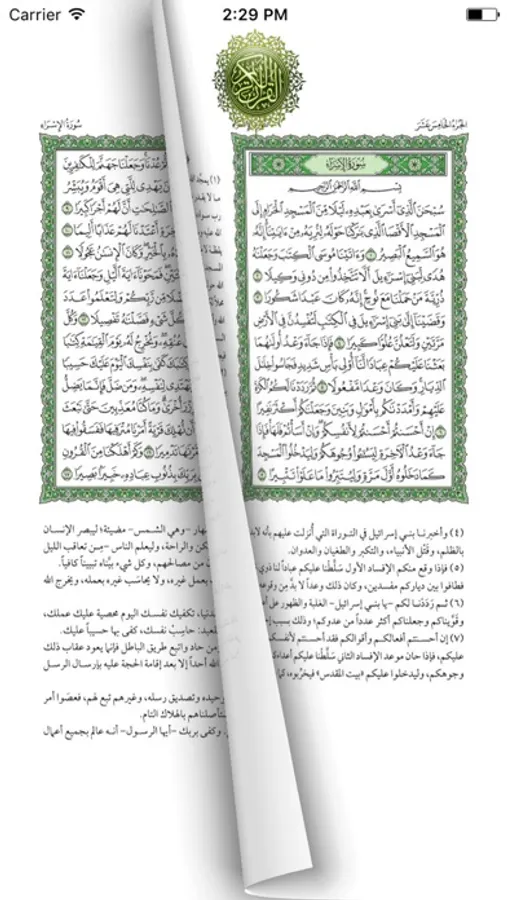 Carrier 2:29 PM
القرآن الكريم
الجزء الخامس عشر
سورة الإسراء
سورة الإسراء
بسم الله الرحمن الرحيم
سُبْحَٰنَ ٱلَّذِىٓ أَسْرَىٰ بِعَبْدِهِۦ لَيْلًا مِّنَ ٱلْمَسْجِدِ ٱلْحَرَامِ إِلَى
ٱلْمَسْجِدِ ٱلْأَقْصَا ٱلَّذِى بَٰرَكْنَا حَوْلَهُۥ لِنُرِيَهُۥ مِنْ ءَايَٰتِنَآ إِنَّهُۥ
هُوَ ٱلسَّمِيعُ ٱلْبَصِيرُ ١ وَءَاتَيْنَا مُوسَى ٱلْكِتَٰبَ وَجَعَلْنَٰهُ
هُدًى لِّبَنِىٓ إِسْرَٰٓءِيلَ أَلَّا تَتَّخِذُوا۟ مِن دُونِى وَكِيلًا ٢
ذُرِّيَّةَ مَنْ حَمَلْنَا مَعَ نُوحٍ إِنَّهُۥ كَانَ عَبْدًا شَكُورًا ٣
وَقَضَيْنَآ إِلَىٰ بَنِىٓ إِسْرَٰٓءِيلَ فِى ٱلْكِتَٰبِ لَتُفْسِدُنَّ فِى ٱلْأَرْضِ
مَرَّتَيْنِ وَلَتَعْلُنَّ عُلُوًّا كَبِيرًا ٤ فَإِذَا جَآءَ وَعْدُ أُولَىٰهُمَا
بَعَثْنَا عَلَيْكُمْ عِبَادًا لَّنَآ أُو۟لِى بَأْسٍ شَدِيدٍ فَجَاسُوا۟ خِلَٰلَ
ٱلدِّيَارِ وَكَانَ وَعْدًا مَّفْعُولًا ٥ ثُمَّ رَدَدْنَا لَكُمُ ٱلْكَرَّةَ
عَلَيْهِمْ وَأَمْدَدْنَٰكُم بِأَمْوَٰلٍ وَبَنِينَ وَجَعَلْنَٰكُمْ أَكْثَرَ نَفِيرًا
٦ إِنْ أَحْسَنتُمْ أَحْسَنتُمْ لِأَنفُسِكُمْ وَإِنْ أَسَأْتُمْ فَلَهَا فَإِذَا
جَآءَ وَعْدُ ٱلْءَاخِرَةِ لِيَسُۥٓـُٔوا۟ وُجُوهَكُمْ وَلِيَدْخُلُوا۟ ٱلْمَسْجِدَ
كَمَا دَخَلُوهُ أَوَّلَ مَرَّةٍ وَلِيُتَبِّرُوا۟ مَا عَلَوْا۟ تَتْبِيرًا ٧
(٤) وأخبرنا بني إسرائيل في التوراة التي أُنزلت عليهم بأنه
بالظلم، وقَتْل الأنبياء، والتكبر والطغيان والعدوان.
(٥) فإذا وقع منكم الإفساد الأول سَلَّطْنا عليكم عباداً لنا ذوي
فطافوا بين دياركم مفسدين، وكان ذلك وعداً لا بدَّ مِن وقوعه
(٦) ثم رَدَدْنا لكم -يا بني إسرائيل- الغلبة والظهور على
وقَوَّيناكم وجعلناكم أكثر عدداً من عدوكم؛ وذلك بسبب
(٧) إن أحسنتم أفعالكم وأقوالكم فقد أحسنتم
عليكم، فإذا حان موعد الإفساد الثاني سَلَّطْنا عليكم
وجوهكم، وليدخلوا عليكم «بيت المقدس» فيخرِّبوه،
سورة الإسراء
عُدْنَا وَجَعَلْنَا جَهَنَّمَ لِلْكَٰفِرِينَ
يَهْدِى لِلَّتِى هِىَ أَقْوَمُ وَيُبَشِّرُ
ٱلصَّٰلِحَٰتِ أَنَّ لَهُمْ أَجْرًا كَبِيرًا ٩
أَعْتَدْنَا لَهُمْ عَذَابًا أَلِيمًا ١٠
بِٱلْخَيْرِ وَكَانَ ٱلْإِنسَٰنُ عَجُولًا ١١
فَمَحَوْنَآ ءَايَةَ ٱلَّيْلِ وَجَعَلْنَآ ءَايَةَ
مِّن رَّبِّكُمْ وَلِتَعْلَمُوا۟ عَدَدَ
شَىْءٍ فَصَّلْنَٰهُ تَفْصِيلًا ١٢ وَكُلَّ
عُنُقِهِۦ وَنُخْرِجُ لَهُۥ يَوْمَ ٱلْقِيَٰمَةِ كِتَٰبًا
كِتَٰبَكَ كَفَىٰ بِنَفْسِكَ ٱلْيَوْمَ عَلَيْكَ حَسِيبًا
يَهْتَدِى لِنَفْسِهِۦ وَمَن ضَلَّ فَإِنَّمَا يَضِلُّ
أُخْرَىٰ وَمَا كُنَّا مُعَذِّبِينَ حَتَّىٰ نَبْعَثَ
نُّهْلِكَ قَرْيَةً أَمَرْنَا مُتْرَفِيهَا فَفَسَقُوا۟ فِيهَا
تَدْمِيرًا ١٦ وَكَمْ أَهْلَكْنَا مِنَ ٱلْقُرُونِ
بِرَبِّكَ بِذُنُوبِ عِبَادِهِۦ خَبِيرًۢا بَصِيرًا ١٧
-وهي الشمس- مضيئة؛ ليبصر الإنسان
والراحة، وليعلم الناس -مِن تعاقب الليل
من مصالحهم، وكل شيء بيَّنَّاه تبييناً كافياً.
بعمل غيره، ولا يحاسَب غيره بعمله، ويخرج الله
تكفيك نفسك اليوم محصية عليك عملك،
حاسِبْ نفسك، كفى بها حسيباً عليك.
من حاد واتبع طريق الباطل فإنما يعود عقاب ذلك
الله أحداً إلا بعد إقامة الحجة عليه بإرسال الرسل
وتصديق رسله، وغيرهم تبع لهم، فعصَوا أمر
فاستأصلناهم بالهلاك التام.
وكفى بربك -أيها الرسول- أنه عالم بجميع أعمال